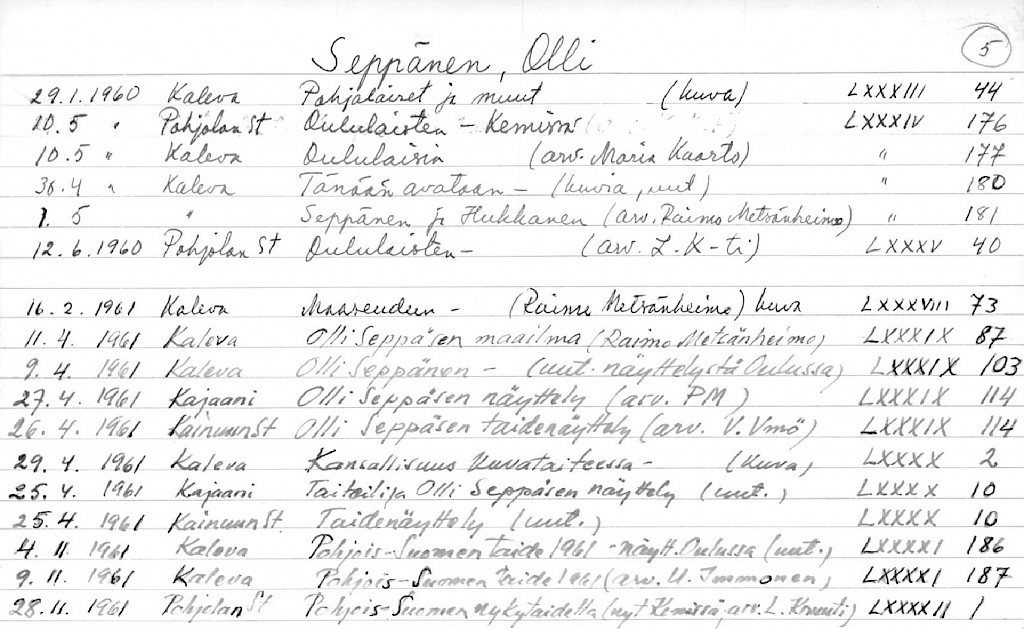 5
Seppänen, Olli
29.1.1960 Kaleva Pohjalaiset ja muut (kuva) LXXXIII 44
20.5 " Pohjolan St Oululaisten - Kemissä LXXXIV 176
10.5 " Kaleva Oululaisia (arv. Maria Kaarto) " 177
30.4 " Kaleva Tänään avataan - (kuvia, uut) " 180
1.5 " Seppänen ja Hukkanen (arv. Raimo Metsänheimo) " 181
12.6.1960 Pohjolan St Oululaisten - (arv. L. K-ti) LXXXV 40
16.2.1961 Kaleva Maaseudun - (Raimo Metsänheimo) kuva LXXXVIII 73
11.4.1961 Kaleva Olli Seppäsen maailma (Raimo Metsänheimo) LXXXIX 87
9.4.1961 Kaleva Olli Seppänen - (uut. näyttelystä Oulussa) LXXXIX 103
27.4.1961 Kajaani Olli Seppäsen näyttely (arv. PM) LXXXIX 114
26.4.1961 Kainuun St Olli Seppäsen taidenäyttely (arv. V.Vmö) LXXXIX 114
29.4.1961 Kaleva Kansallisuus kuvataiteessa - (kuva) LXXXX 2
25.4.1961 Kajaani Taiteilija Olli Seppäsen näyttely (uut.) LXXXX 10
25.4.1961 Kainuun St. Taidenäyttely (uut.) LXXXX 10
4.11.1961 Kaleva Pohjois-Suomen taide 1961 -näytt. Oulussa (uut.) LXXXXI 186
9.11.1961 Kaleva Pohjois-Suomen taide 1961 (arv. U. Immonen) LXXXXI 187
28.11.1961 Pohjolan St Pohjois-Suomen nykytaidetta (nyt Kemissä, arv. L. Kruuti) LXXXXII 1